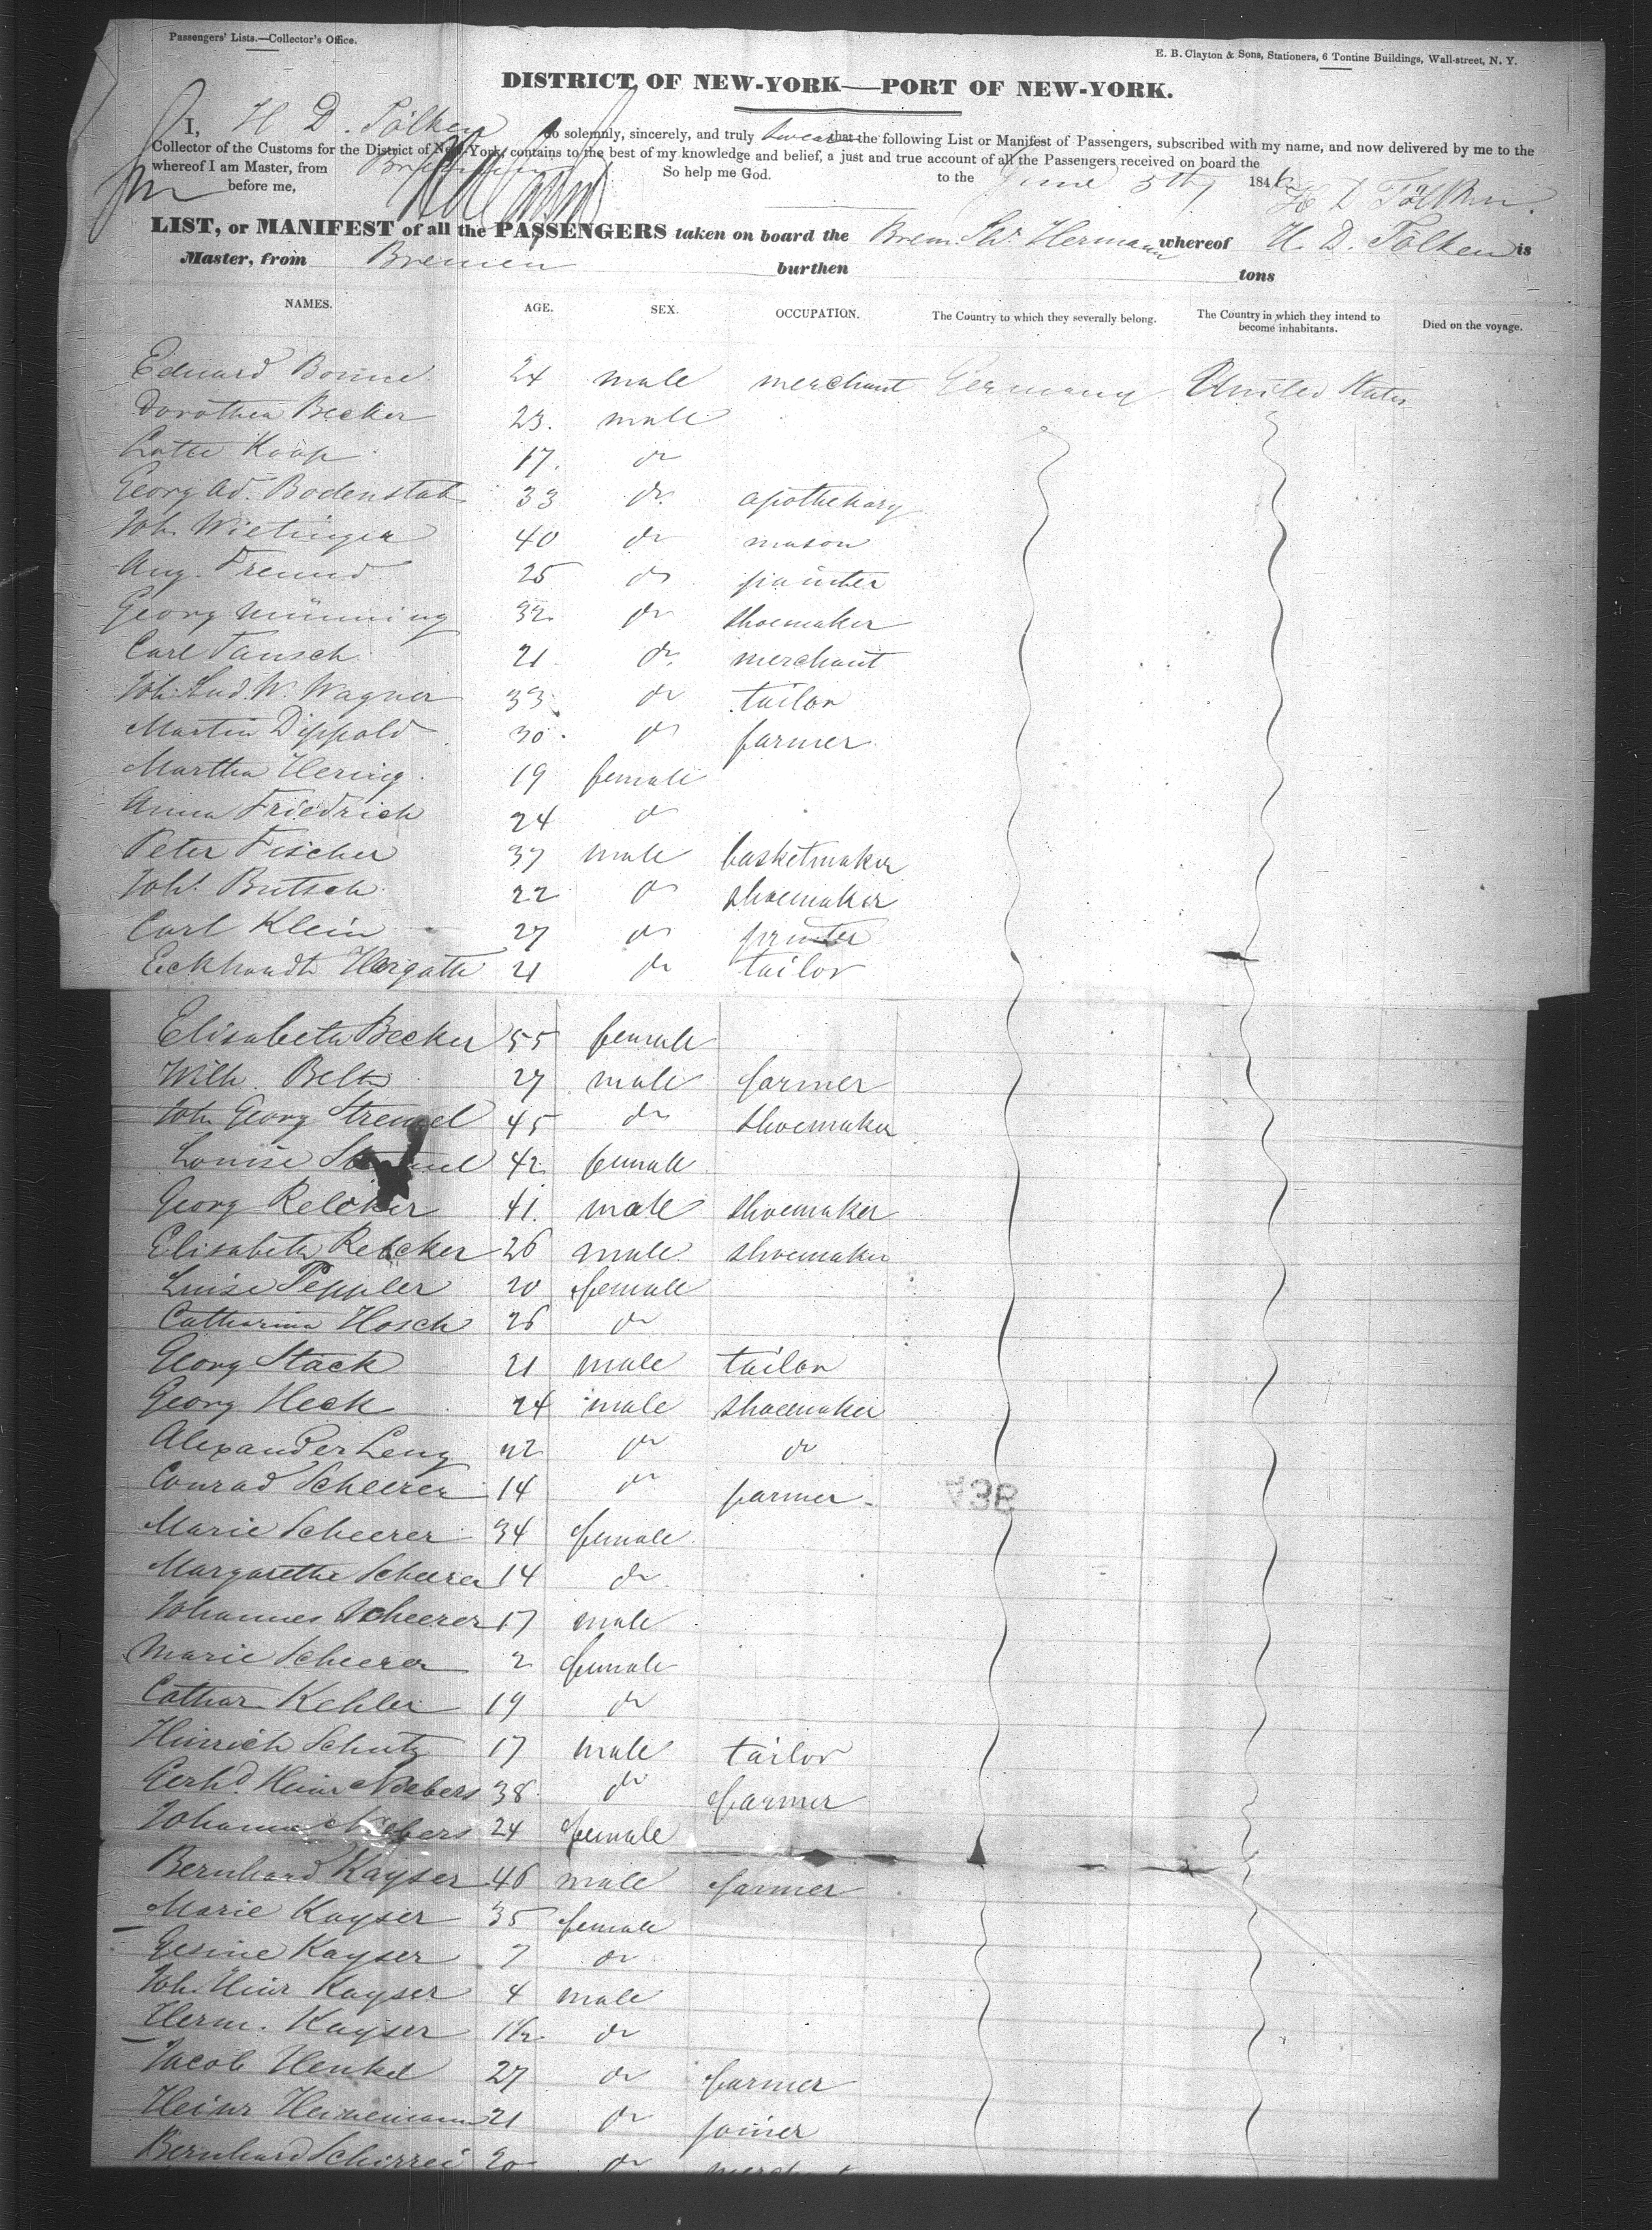 Passengers' Lists.—Collector's Office.
E. B. Clayton & Sons, Stationers, 6 Tontine Buildings, Wall-street, N. Y.
DISTRICT OF NEW-YORK—PORT OF NEW-YORK.
I, H D. Tölken do solemnly, sincerely, and truly swear that the following List or Manifest of Passengers, subscribed with my name, and now delivered by me to the
Collector of the Customs for the District of New-York, contains to the best of my knowledge and belief, a just and true account of all the Passengers received on board the
whereof I am Master, from Bremen So help me God.
before me, to the June 5th 1846 H D Tölken.
LIST, or MANIFEST of all the PASSENGERS taken on board the Brem. Sh. Hermann whereof H. D. Tölken is
Master, from Bremen burthen tons
NAMES. AGE. SEX. OCCUPATION. The Country to which they severally belong. The Country in which they intend to become inhabitants. Died on the voyage.
Eduard Bonne 24 male merchant Germany United States
Dorothea Becker 23. male
Lotte Koop 17. do
Georg Ad. Bodenstab 33 do. apothekary
Joh. Wietinger 40 do mason
Aug. Freund 25 do painter
Georg Münning 32 do shoemaker
Carl Tausch 21 do. merchant
Joh. Lud. W. Wagner 33 do tailor
Martin Dippold 30 do farmer
Martha Hering 19 female
Anna Friedrich 24 do
Peter Fischer 37 male basketmaker
Joh. Butsch 22 do shoemaker
Carl Klein 27 do printer
Eckhardt Hergath 21 do tailor
Elisabeth Becker 55 female
Wilh. Belt 27 male farmer
Joh Georg Strempel 45 do shoemaker
Louise 42 female
Georg Relcker 41. male shoemaker
Elisabeth Relcker 26 male shoemaker
Luise Peppler 20 female
Catharina Hosch 26 do
Georg Stack 21 male tailor
Georg Heck 24 male shoemaker
Alexander Leng 22 do do
Conrad Scheerer 14 do farmer
Marie Scheerer 34 female
Margarethe Scheerer 14 do
Johannes Scheerer 17 male
Marie Scheerer 2 female
Cathar Kehler 19 do
Hinrich Schutz 17 male tailor
Gerhd. Heinr Niebers 38 do farmer
Johanna Niebers 24 female
Bernhard Kayser 46 male farmer
Marie Kayser 35 female
Gesine Kayser 7 do
Joh. Heinr Kayser 4 male
Herm. Kayser 1½ do
Jacob Henkel 27 do farmer
Heinr Heinemann 21 do joiner
Bernhard 20 do merchant